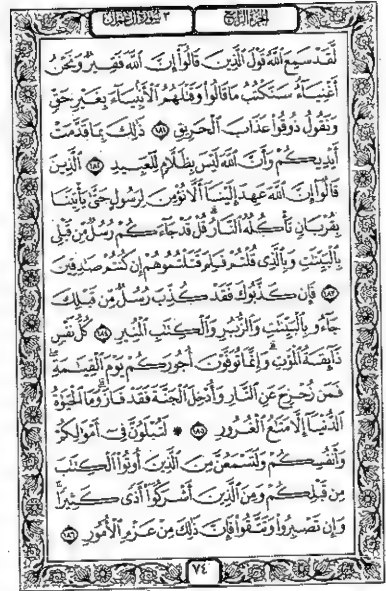 الجزء الرابع
٣ سورة آل عمران
لَّقَدْ سَمِعَ اللَّهُ قَوْلَ الَّذِينَ قَالُوا إِنَّ اللَّهَ فَقِيرٌ وَنَحْنُ
أَغْنِيَاءُ سَنَكْتُبُ مَا قَالُوا وَقَتْلَهُمُ الْأَنبِيَاءَ بِغَيْرِ حَقٍّ
وَنَقُولُ ذُوقُوا عَذَابَ الْحَرِيقِ ١٨١ ذَٰلِكَ بِمَا قَدَّمَتْ
أَيْدِيكُمْ وَأَنَّ اللَّهَ لَيْسَ بِظَلَّامٍ لِّلْعَبِيدِ ١٨٢ الَّذِينَ
قَالُوا إِنَّ اللَّهَ عَهِدَ إِلَيْنَا أَلَّا نُؤْمِنَ لِرَسُولٍ حَتَّىٰ يَأْتِيَنَا
بِقُرْبَانٍ تَأْكُلُهُ النَّارُ ۗ قُلْ قَدْ جَاءَكُمْ رُسُلٌ مِّن قَبْلِي
بِالْبَيِّنَاتِ وَبِالَّذِي قُلْتُمْ فَلِمَ قَتَلْتُمُوهُمْ إِن كُنتُمْ صَادِقِينَ
١٨٣ فَإِن كَذَّبُوكَ فَقَدْ كُذِّبَ رُسُلٌ مِّن قَبْلِكَ
جَاءُو بِالْبَيِّنَاتِ وَالزُّبُرِ وَالْكِتَابِ الْمُنِيرِ ١٨٤ كُلُّ نَفْسٍ
ذَائِقَةُ الْمَوْتِ ۗ وَإِنَّمَا تُوَفَّوْنَ أُجُورَكُمْ يَوْمَ الْقِيَامَةِ ۖ
فَمَن زُحْزِحَ عَنِ النَّارِ وَأُدْخِلَ الْجَنَّةَ فَقَدْ فَازَ ۗ وَمَا الْحَيَوٰةُ
الدُّنْيَا إِلَّا مَتَاعُ الْغُرُورِ ١٨٥ ۞ لَتُبْلَوُنَّ فِي أَمْوَالِكُمْ
وَأَنفُسِكُمْ وَلَتَسْمَعُنَّ مِنَ الَّذِينَ أُوتُوا الْكِتَابَ
مِن قَبْلِكُمْ وَمِنَ الَّذِينَ أَشْرَكُوا أَذًى كَثِيرًا ۚ
وَإِن تَصْبِرُوا وَتَتَّقُوا فَإِنَّ ذَٰلِكَ مِنْ عَزْمِ الْأُمُورِ ١٨٦
٧٤